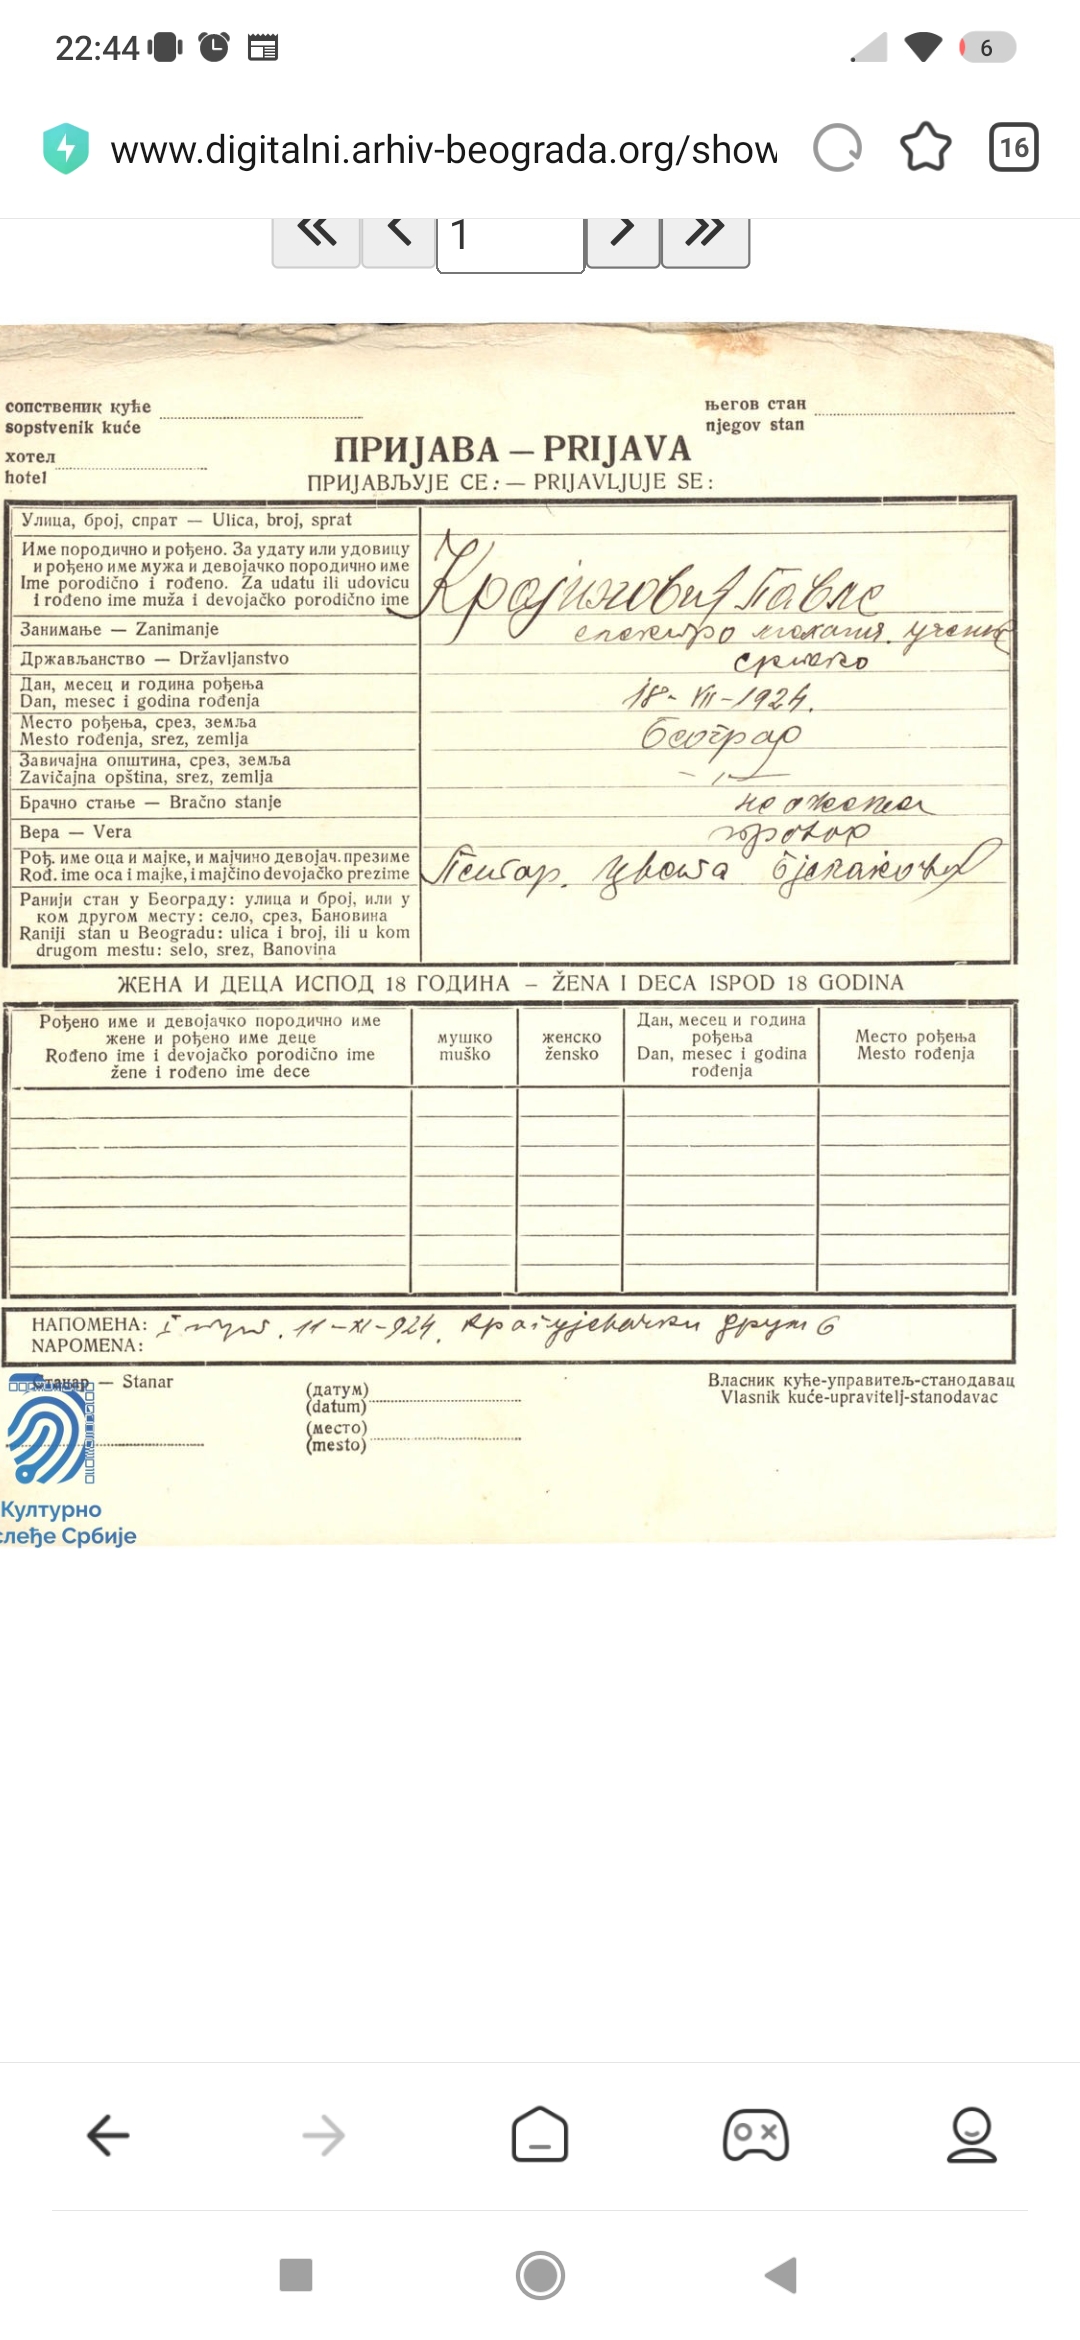 22:44
6
www.digitalni.arhiv-beograda.org/show
16
1
сопственик куће
sopstvenik kuće
његов стан
njegov stan
хотел
hotel
ПРИЈАВА — PRIJAVA
ПРИЈАВЉУЈЕ СЕ: — PRIJAVLJUJE SE:
Улица, број, спрат — Ulica, broj, sprat
Име породично и рођено. За удату или удовицу
и рођено име мужа и девојачко породично име
Ime porodično i rođeno. Za udatu ili udovicu
i rođeno ime muža i devojačko porodično ime
Крајиновић Павле
Занимање — Zanimanje
електро механ. ученик
Држављанство — Državljanstvo
српско
Дан, месец и година рођења
Dan, mesec i godina rođenja
18-VII-1924.
Место рођења, срез, земља
Mesto rođenja, srez, zemlja
Београд
Завичајна општина, срез, земља
Zavičajna opština, srez, zemlja
Брачно стање — Bračno stanje
неожењен
Вера — Vera
Рођ. име оца и мајке, и мајчино девојач. презиме
Rođ. ime oca i majke, i majčino devojačko prezime
Петар. Цвета
Ранији стан у Београду: улица и број, или у
ком другом месту: село, срез, Бановина
Raniji stan u Beogradu: ulica i broj, ili u kom
drugom mestu: selo, srez, Banovina
ЖЕНА И ДЕЦА ИСПОД 18 ГОДИНА — ŽENA I DECA ISPOD 18 GODINA
Рођено име и девојачко породично име
жене и рођено име деце
Rođeno ime i devojačko porodično ime
žene i rođeno ime dece
мушко
muško
женско
žensko
Дан, месец и година
рођења
Dan, mesec i godina
rođenja
Место рођења
Mesto rođenja
НАПОМЕНА: I пут. 11-XI-924. Крагујевачки друм 6
NAPOMENA:
Станар — Stanar
(датум)
(datum)
(место)
(mesto)
Власник куће-управитељ-станодавац
Vlasnik kuće-upravitelj-stanodavac
Културно
слеђе Србије